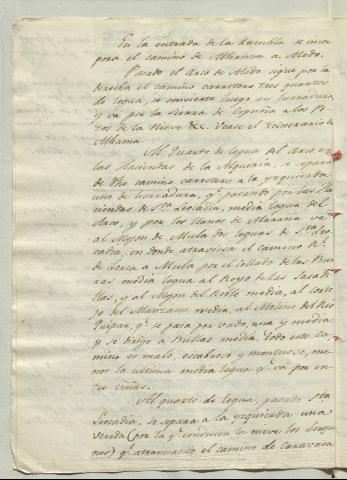 En la entrada de la Rambla se incor
pora el camino de Alhama a Aledo.
Pasado el Arco de Aledo sigue por la
derecha el camino carretero tres quartos
de legua, se convierte luego en herradura
y vá por la Sierra de España a los Po
zos de la Nieve &c. Vease el Itinerario de
Alhama.
Al quarto de legua del Arco en
las Haciendas de la Alqueria, se separa
de dho camino carretero a la yzquierda
uno de herradura, q.e pasando por las Ha
ciendas de S.ta Leocadia, media legua del
Arco, y por los llanos de Marana va
al Mojon de Mula dos leguas de S.ta Leo
cadia, en donde atraviesa el camino R.l
de Lorca a Mula por el Collado de las Bur
ras media legua al Royo de las Casa
llas, y al Mojon del Roble media, al Corti
jo del Manzano media, al Molino del Rio
Quipar, q.e se pasa por vado, una y media,
y se dirige a Bullas media. Todo este ca
mino es malo, escabroso y montuoso, me
nos la ultima media legua q.e vá por en
tre viñas.
Al quarto de legua, pasado S.ta
Leocadia, se separa a la yzquierda una
vereda (por la q.e conducen la nieve los Lorqui
nos) q.e atravesando el camino de Caravaca